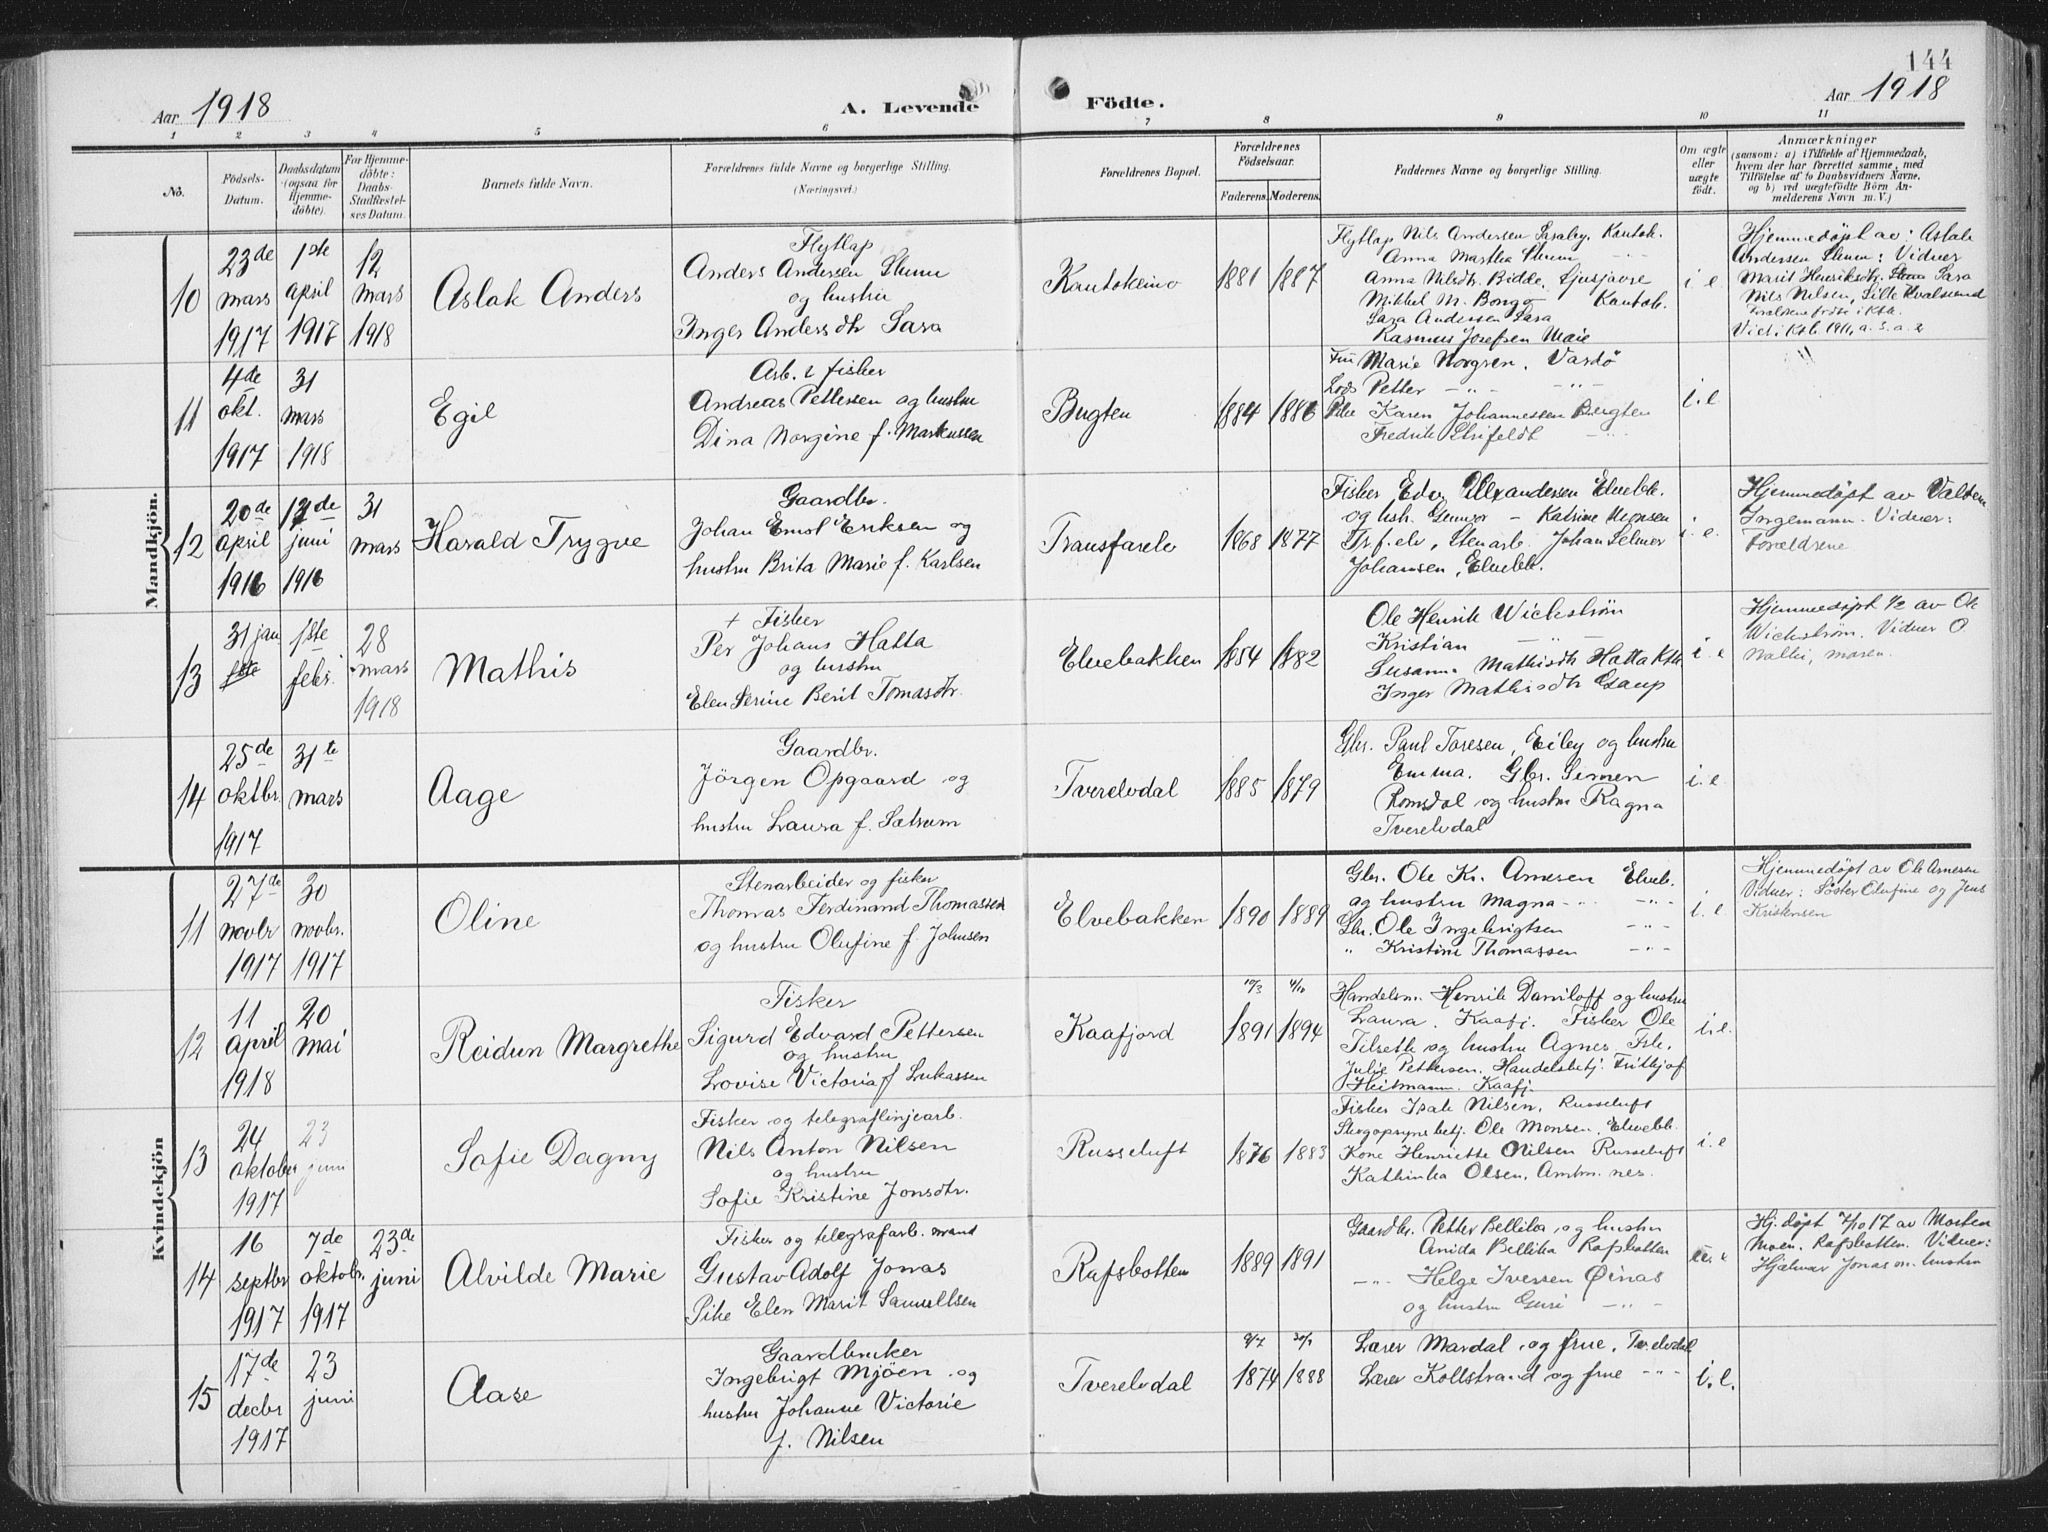 144
Aar 1918
A. Levende Födte.
Aar 1918
1 2 3 4 5 6 7 8 9 10 11
No.
Födsels-Datum.
Daabsdatum (ogsaa for Hjemme-döbte).
For Hjemme-döbte: Daabs-Stadfæstel-ses Datum.
Barnets fulde Navn.
Forældrenes fulde Navne og borgerlige Stilling.
(Næringsvei.)
Forældrenes Bopæl.
Forældrenes Födselsaar.
Faderens.
Moderens.
Faddernes Navne og borgerlige Stilling.
Om ægte eller uægte födt.
Anmærkninger
(saasom: a) i Tilfælde af Hjemmedaab,
hvem der har forrettet samme, med
Tilföielse af to Daabsvidners Navne,
og b) ved uægtefödte Börn An-
melderens Navn m. V.)
Mandkjön.
10
23de mars 1917
1ste april 1917
12 mars 1918
Aslak Anders
Flytlap
Anders Andersen
og hustru
Inger Andersdtr Sara
Kautokeino
1881
1887
Flytlap Nils Andersen Kautok.
Anna Martha
Anna Nilsdtr Bidde,
Mikkel M. Bongo Kautok.
Sara Andersen Sara
Rasmus Josefsen
i e
Hjemmedøpt av: Aslak
Andersen Vidner
Marit Henriksdtr. Sara
Nils Nilsen, Lille Kvalsund
11
4de okt. 1917
31 mars 1918
Egil
Arb. & fisker
Andreas Pettersen og hustru
Dina Norgine f. Markussen
Bugten
1884
1886
Marie Norgren. Vardö
Lods Petter -"- -"-
Pike Karen Johannessen Bugten
Fredrik -"-
i. e
12
20de april 1916
17de juni 1916
31 mars
Harald Trygve
Gaardbr.
Johan Ernst Eriksen og
hustru Brita Marie f. Karlsen
Transfarelv
1868
1877
Fisker Edv Alexandersen Elvebk.
og hstr. Gunvor - Katrine Monsen
Tr.f.elv, Stenarb. Johan Selmer
Johansen, Elvebk.
i. e.
Hjemmedøpt av
Ingemann. Vidner:
Forældrene
13
31 jan
1ste febr.
28 mars 1918
Mathis
+ Fisker
Per Johans Hatta
og hustru
Elen Serine Berit Tomasdtr.
Elvebakken
1854
1882
Ole Henrik Wickstrøm
Kristian -"-
Susanna Mathisdtr Hatta
Inger Mathisdtr Gaup
i. e
Hjemmedøpt 1/2 av Ole
Wickstrøm. Vidner O
14
25de oktbr. 1917
31te mars
Aage
Gaardbr.
Jörgen Opgaard og
hustru Laura f. Sætrum
Tverelvdal
1885
1879
Gbr. Paul Toresen, Eiby og hustru
Emma. Gbr. Simen
Romsdal og hustru Ragna
Tverelvdal
i. e
Kvindekjön
11
27de novbr 1917
30 novbr. 1917
Oline
Stenarbeider og fisker
Thomas Ferdinand Thomassen
og hustru Olufine f. Johnsen
Elvebakken
1890
1889
Gbr. Ole Kr. Arnesen Elveb.
og hustru Magna -"- -"-
Gbr. Ole Ingebrigtsen -"-
" Kristine Thomassen -"-
i. e
Hjemmedøpt av Ole Arnesen
Vidner: Søster Olufine og Jens
Kristensen
12
11 april 1918
20 mai
Reidun Margrethe
Fisker
Sigurd Edvard Pettersen
og hustru
Lovise Victoria f Lukassen
Kaafjord
1891
1894
Handelsm. Henrik Daniloff og hustru
Laura. Kaafj. Fisker Ole
Tilseth og hustru Agnes
Julie Pettersen. Handelsbetj. Fritjof
Heitmann. Kaafj.
i. e.
13
24 oktober 1917
23 juni
Sofie Dagny
Fisker og telegraflinjearb.
Nils Anton Nilsen
og hustru
Sofie Kristine Jonsdtr.
Russeluft
1876
1883
Fisker Isak Nilsen. Russeluft
Skogopsynsbetj. Ole Monsen, Elvebk.
Kone Henriette Nilsen Russeluft
Kathinka Olsen, Amtm. nes.
i. e
14
16 septbr 1917
7de oktobr. 1917
23de juni
Alvilde Marie
Fisker og telegrafarb.
Gustav Adolf Jonas
Pike Elen Marit Samuelsen
Rafsbotten
1889
1891
Gaardbr. Petter Bellika, og hustru
Anida Bellika Rafsbotten
-"- Helge Iversen Øinas
og hustru Guri -"-
Hj. døpt 7/10 17 av Morten
Moen. Rafsbotten. Vidner:
Hjalmar Jonas m. hustru
15
17de decbr 1917
23 juni
Aase
Gaardbruker
Ingebrigt Mjöen og
hustru Johanne Victorie
f. Nilsen
Tverelvdal
1874
1888
Lærer Mardal og frue, Tverelvdal
Lærer Kollstrand og frue -"-
i. e.